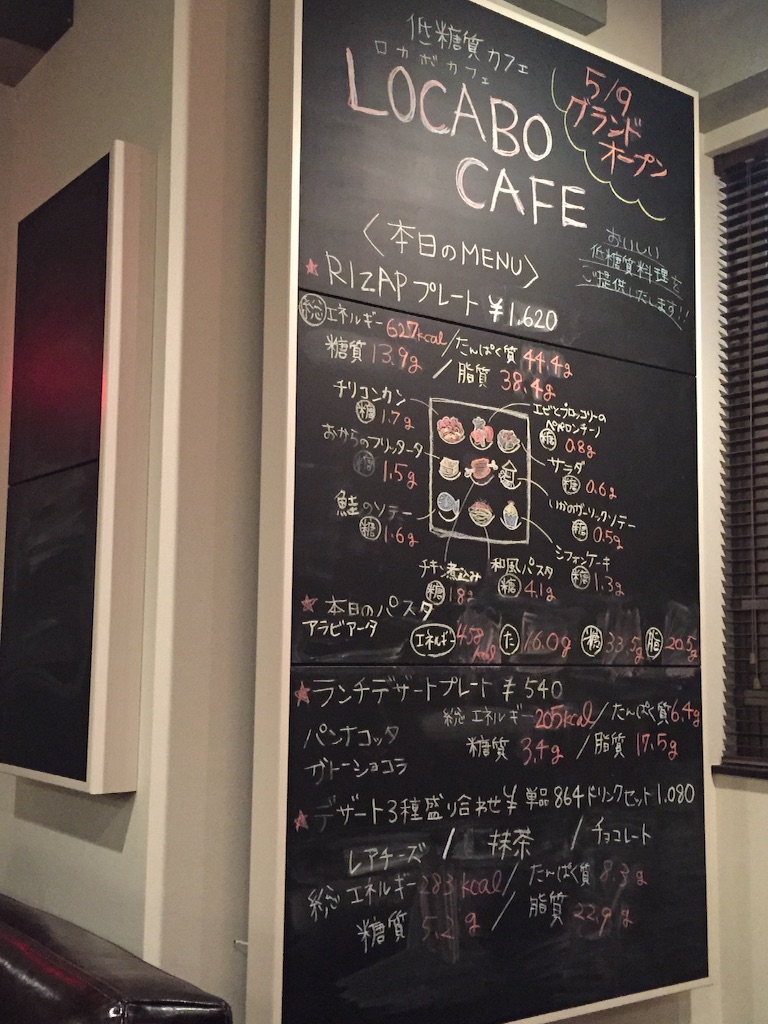 低糖質カフェ
ロカボカフェ
LOCABO
CAFE
5/9
グランド
オープン
おいしい
低糖質料理を
ご提供いたします!!
〈本日のMENU〉
★RIZAPプレート ¥1,620
総エネルギー 627kcal/たんぱく質 44.4g
糖質 13.9g/脂質 38.4g
チリコンカン
糖 1.7g
おからのフリッター
糖 1.5g
鮭のソテー
糖 1.6g
エビとブロッコリーの
ペペロンチーノ
糖 0.8g
サラダ
糖 0.6g
いかのガーリックソテー
糖 0.5g
シフォンケーキ
糖 1.3g
チキン煮込み
糖 1.8g
和風パスタ
糖 4.1g
★本日のパスタ
アラビアータ
エネルギー 458kcal た 16.0g 糖 33.5g 脂 20.5g
★ランチデザートプレート ¥540
パンナコッタ
ガトーショコラ
総エネルギー 205kcal/たんぱく質 6.4g
糖質 3.4g/脂質 17.5g
★デザート3種盛り合わせ ¥ 単品864 ドリンクセット1,080
レアチーズ/抹茶/チョコレート
総エネルギー 283kcal/たんぱく質 8.3g
糖質 5.2g/脂質 22.9g